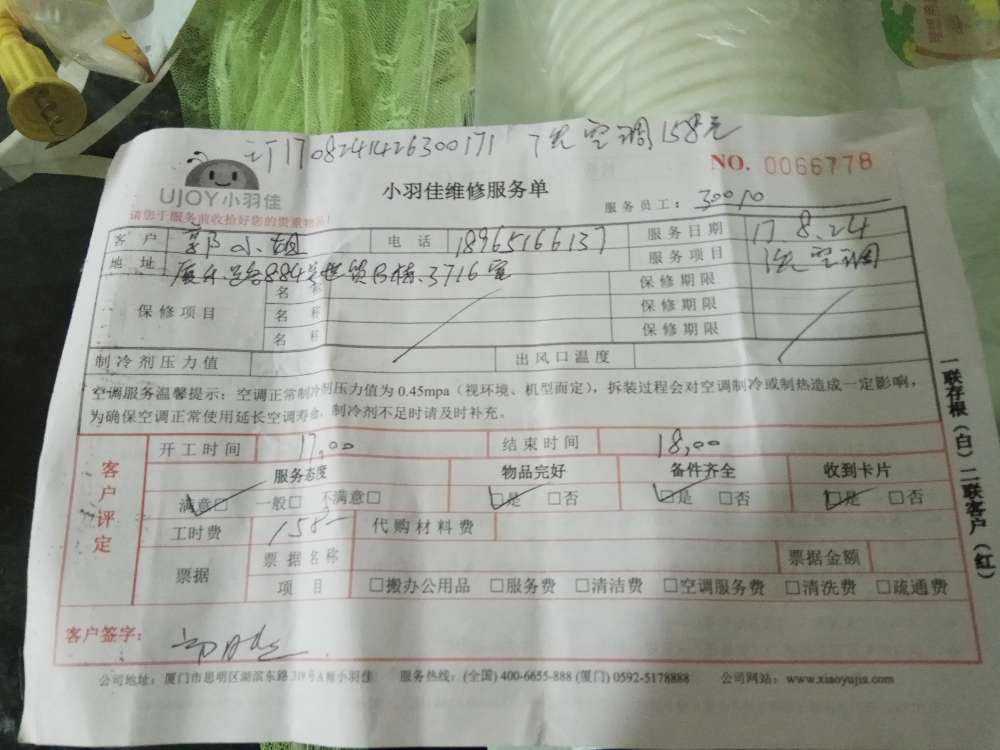 订1708241426300171 洗空调158元
UJOY小羽佳
小羽佳维修服务单
NO. 0066778
请您于服务前收拾好您的贵重物品!
服务员工: 30010
客户 郭小姐 电话 18965166137 服务日期 17.8.24
地址 884号世贸B栋.3716室 服务项目 洗空调
保修项目 名称 保修期限
名称 保修期限
名称 保修期限
制冷剂压力值 出风口温度
空调服务温馨提示:空调正常制冷剂压力值为 0.45mpa(视环境、机型而定),拆装过程会对空调制冷或制热造成一定影响,
为确保空调正常使用延长空调寿命,制冷剂不足时请及时补充。
客户评定
开工时间 17.00 结束时间 18.00
服务态度 物品完好 备件齐全 收到卡片
满意□ 一般□ 不满意□ □是 □否 □是 □否 □是 □否
工时费 158- 代购材料费
票据 票据名称 票据金额
项目 □搬办公用品 □服务费 □清洁费 □空调服务费 □清洗费 □疏通费
客户签字:
公司地址:厦门市思明区湖滨东路 小羽佳 服务热线:(全国) 400-6655-888 (厦门) 0592-5178888 公司网站:www.xiaoyujia.com
一联存根(白)二联客户(红)